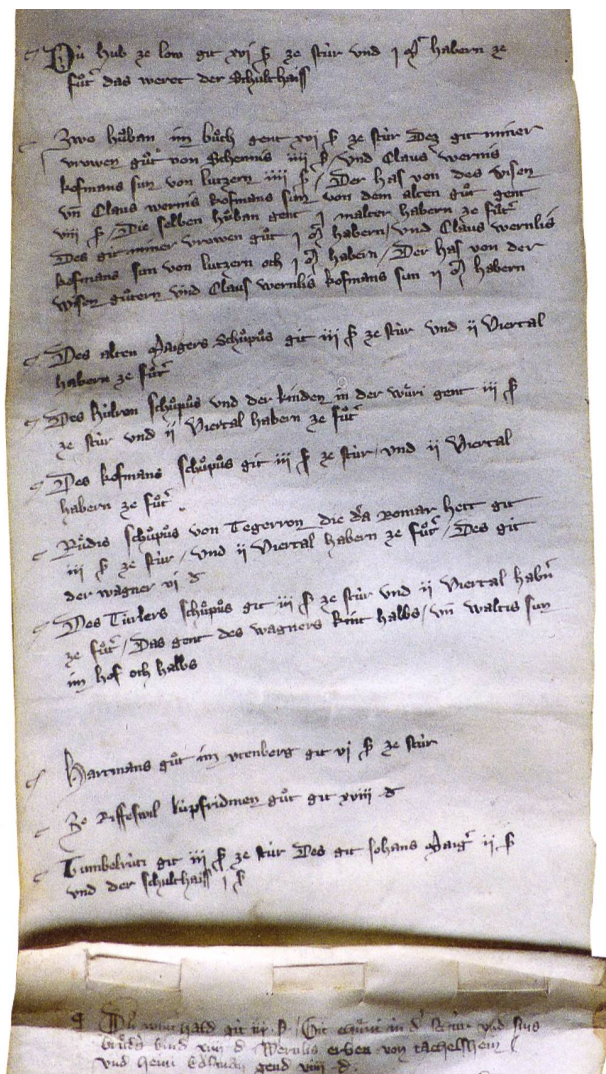 Dú hub ze low git xvi ß ze stúr vnd j mt̄ habern ze
fůt̄ das weret der Schulthaiss
Zwo hůban im bůch gent xvi ß ze stúr Dez git miner
vrowen gůt von Schennis iiii ß / vnd Claus wernis
kofmans sun von lutzern iiii ß / Der has von des wisen
vn̄ Claus wernis kofmans sun von dem alten gůt gent
viii ß / Die selben hůban gent j malter habern ze fůt̄
Des git miner vrowen gůt j mt̄ habern / vnd Claus wernlis
kofmans sun von lutzern och j mt̄ habern / Der has von der
wisen gůtern vnd Claus wernlis kofmans sun ii mt̄ habern
Des alten Maigers Schůpůs git iii ß ze stúr vnd ii Viertal
habern ze fůt̄
Des schůpůs vnd der kinden in der wůri gent iii ß
ze stúr vnd ii Viertal habern ze fůt̄
Des kofmans schůpůs git iii ß ze stúr / vnd ii Viertal
habern ze fůt̄
Růdis schůpůs von Tegerron die d̄a Romar hett git
iii ß ze stúr / vnd ii Viertal habern ze fůt̄ / Des git
der wagner vi d
Des Túrlers schůpůs git iii ß ze stúr vnd ii Viertal habn̄
ze fůt̄ / Das gent des wagners kint halbs / vn̄ waltis sun
im hof och halbs
Hartmans gůt im vtenberg git vi ß ze stúr
Ze Riffeswil kúpfridinen gůt git xviii d
Tumbelrúti git iii ß ze stúr Des git Johans Maiḡ ii ß
vnd der schulthaiss j ß
Dú hald git iii ß / Git in d̄ vnd sins
brůd̄s kind xviii d Wernlis erben von tachelshein
vnd heini gend viii d